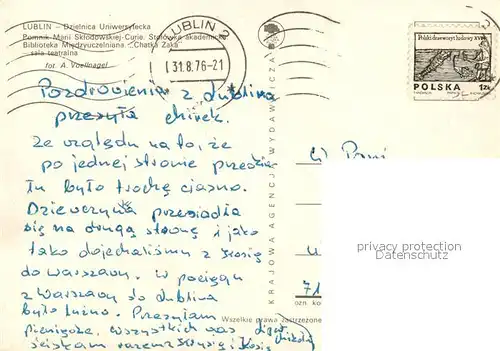 LUBLIN – Dzielnica Uniwersytecka
Pomnik Marii Skłodowskiej-Curie. Stołówka akademicka
Biblioteka Międzyuczelniana. „Chatka Żaka"
– sala teatralna
fot. A. Voellnagel
LUBLIN 2
31.8.76-21
Polski drzeworyt ludowy XVI w.
POLSKA 1zł
Pozdrowienia z Lublina
przesyła
Ze względu na to, że
po jednej stronie
Tu było trochę ciasno.
Dziewczyna przesiadła
się na drugą stronę i jako
tako dojechaliśmy z
do Warszawy. W pociągu
z Warszawy do Lublina
było luźno. Przesyłam
pieniądze, wszystkich was
ściskam razem
KRAJOWA AGENCJA WYDAWNICZA
W. Pani
71
Wszelkie prawa zastrzeżone
privacy protection
watermark